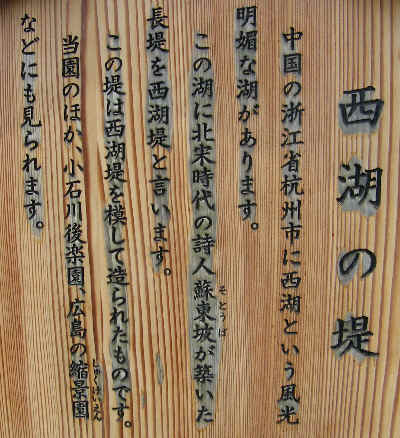 西湖の堤
中国の浙江省杭州市に西湖という風光
明媚な湖があります。
この湖に北宋時代の詩人蘇東坡が築いた
そとうば
長堤を西湖堤と言います。
この堤は西湖堤を模して造られたものです。
当園のほか、小石川後楽園、広島の縮景園
しゅくけいえん
などにも見られます。